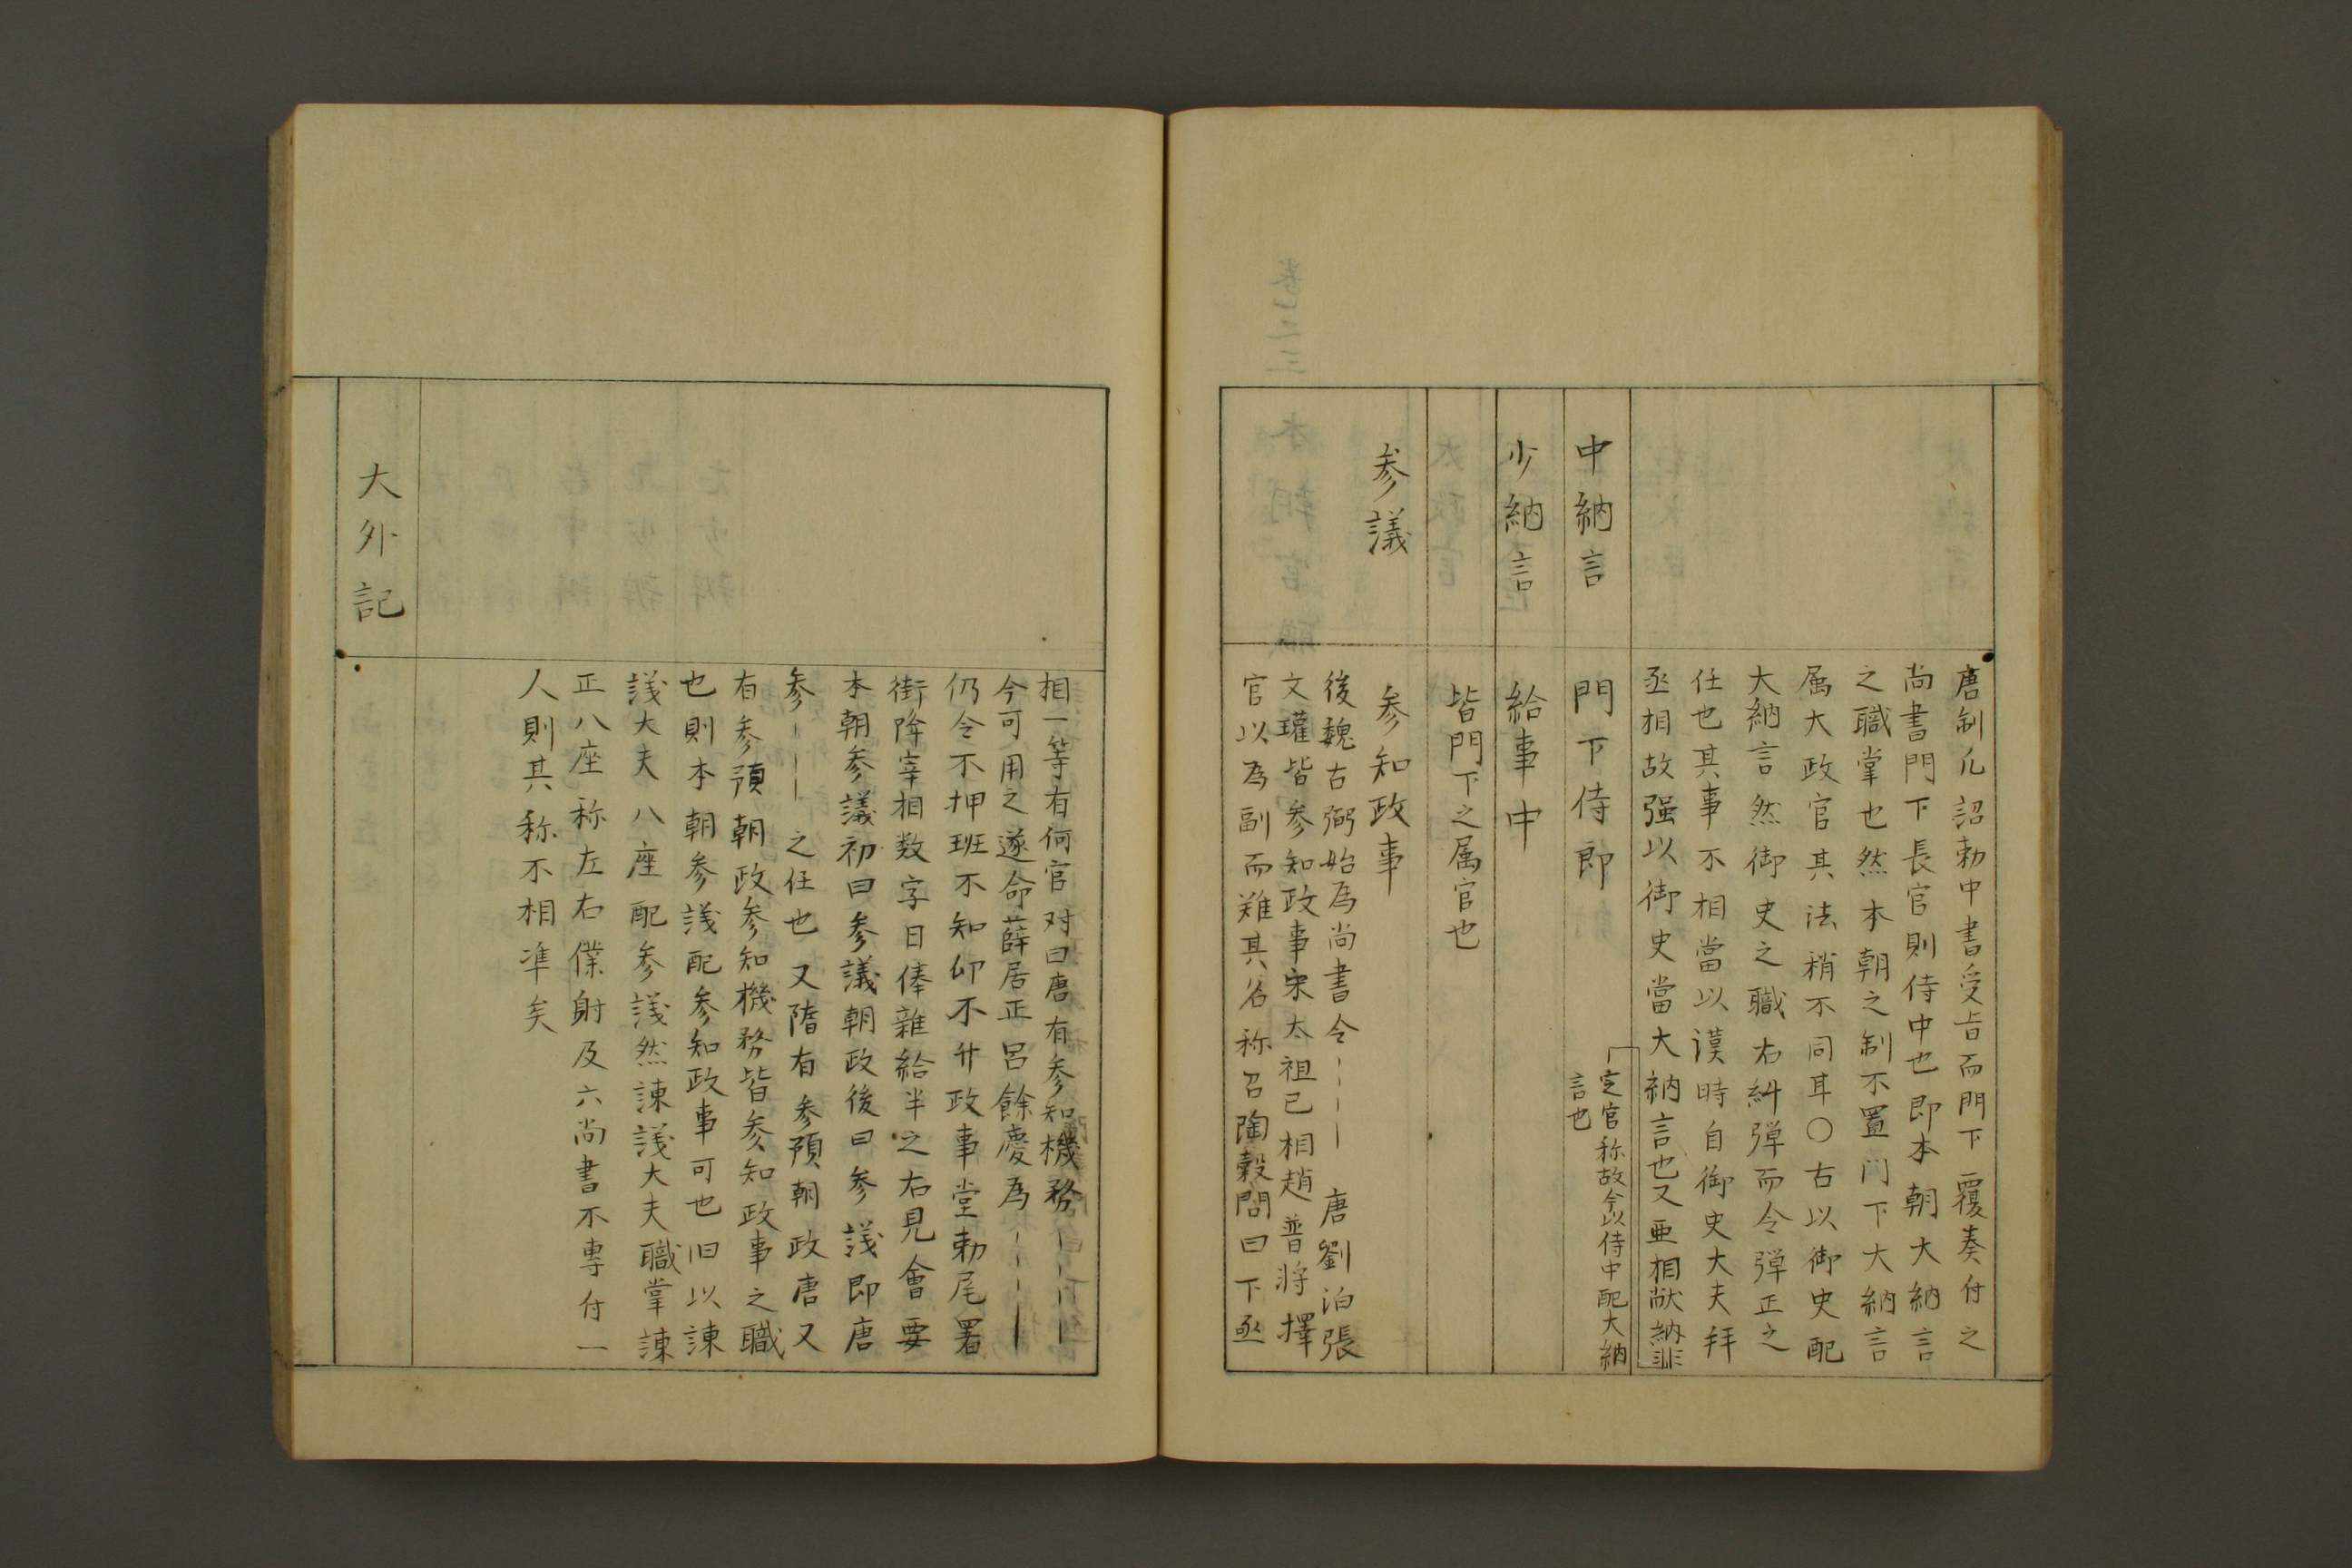 唐制凡詔勅中書受旨而門下覆奏付之
尚書門下長官則侍中也即本朝大納言
之職掌也然本朝之制不置门下大納言
属大政官其法稍不同耳〇右以御史配
大納言然御史之職右糾弾而令弾正之
任也其事不相當以漢時自御史大夫拝
丞相故强以御史當大納言也又亜相献納非
定官称故今以侍中配大納
言也
中納言
門下侍郎
少納言
給事中
皆門下之属官也
参議
参知政事
後魏古弼始為尚書令〡〡〡〡唐劉洎張
文瓘皆参知政事宋太祖已相趙普将擇
官以為副而难其名称召陶穀問曰下丞
相一等有何官对曰唐有参知機務〡〡〡〡
今可用之遂命薛居正呂餘慶為〡〡〡〡
仍令不押班不知印不升政事堂勅尾署
街降宰相数字日俸雜給半之右見會要
本朝参議初曰参議朝政後曰参議即唐
参〡〡〡之任也又隋有参預朝政唐又
有参預朝政参知機務皆参知政事之職
也則本朝参議配参知政事可也旧以諌
議大夫八座配参議然諌議大夫職掌諌
正八座称左右僕射及六尚書不専付一
人則其称不相準矣
大外記